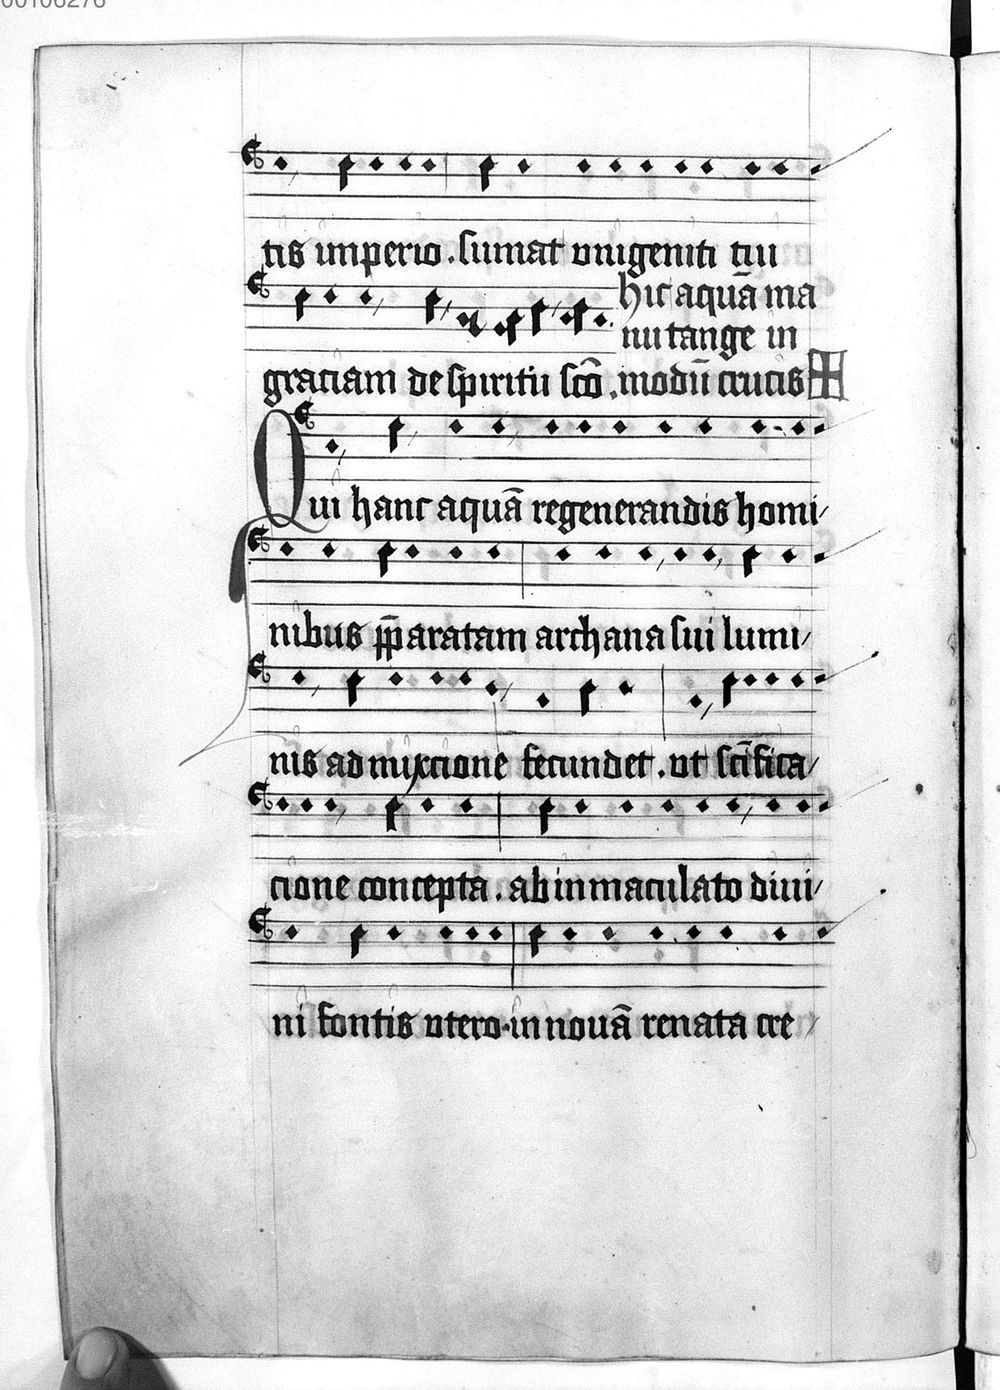 00106276
tis imperio . sumat vnigeniti tui
hic aquā ma
nu tange in
graciam de spiritu scō . modū crucis
Qui hanc aquā regenerandis homi
nibus p̄paratam archana sui lumi
nis admixcione fecundet . vt scīfica
cione concepta . ab inmaculato diui
ni fontis vtero in nouā renata cre